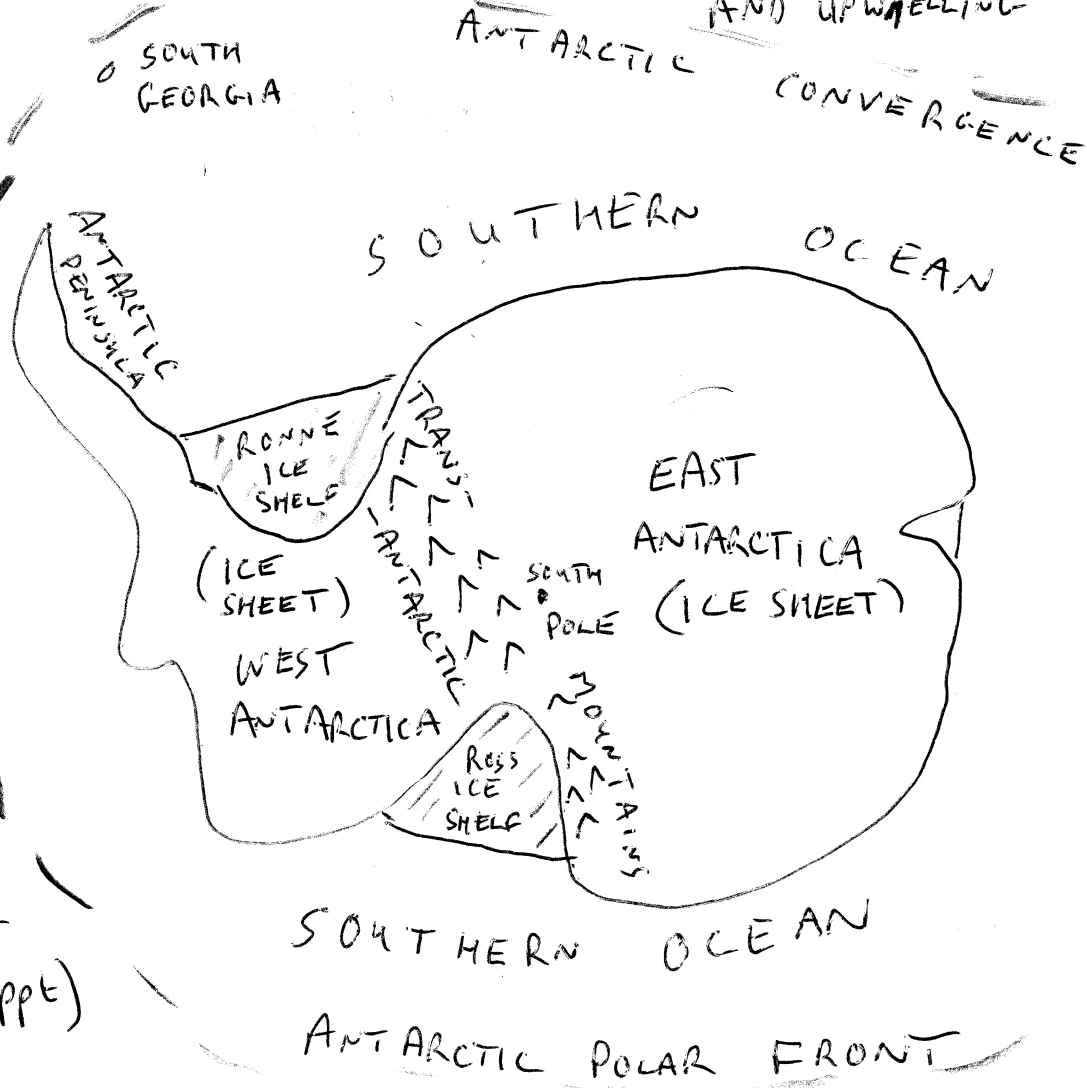 AND UPWELLING
ANTARCTIC CONVERGENCE
SOUTH
GEORGIA
SOUTHERN OCEAN
ANTARCTIC
PENINSULA
RONNE
ICE
SHELF
TRANS-
-ANTARCTIC
MOUNTAINS
EAST
ANTARCTICA
(ICE SHEET)
SOUTH
POLE
(ICE
SHEET)
WEST
ANTARCTICA
ROSS
ICE
SHELF
SOUTHERN OCEAN
ppt)
ANTARCTIC POLAR FRONT